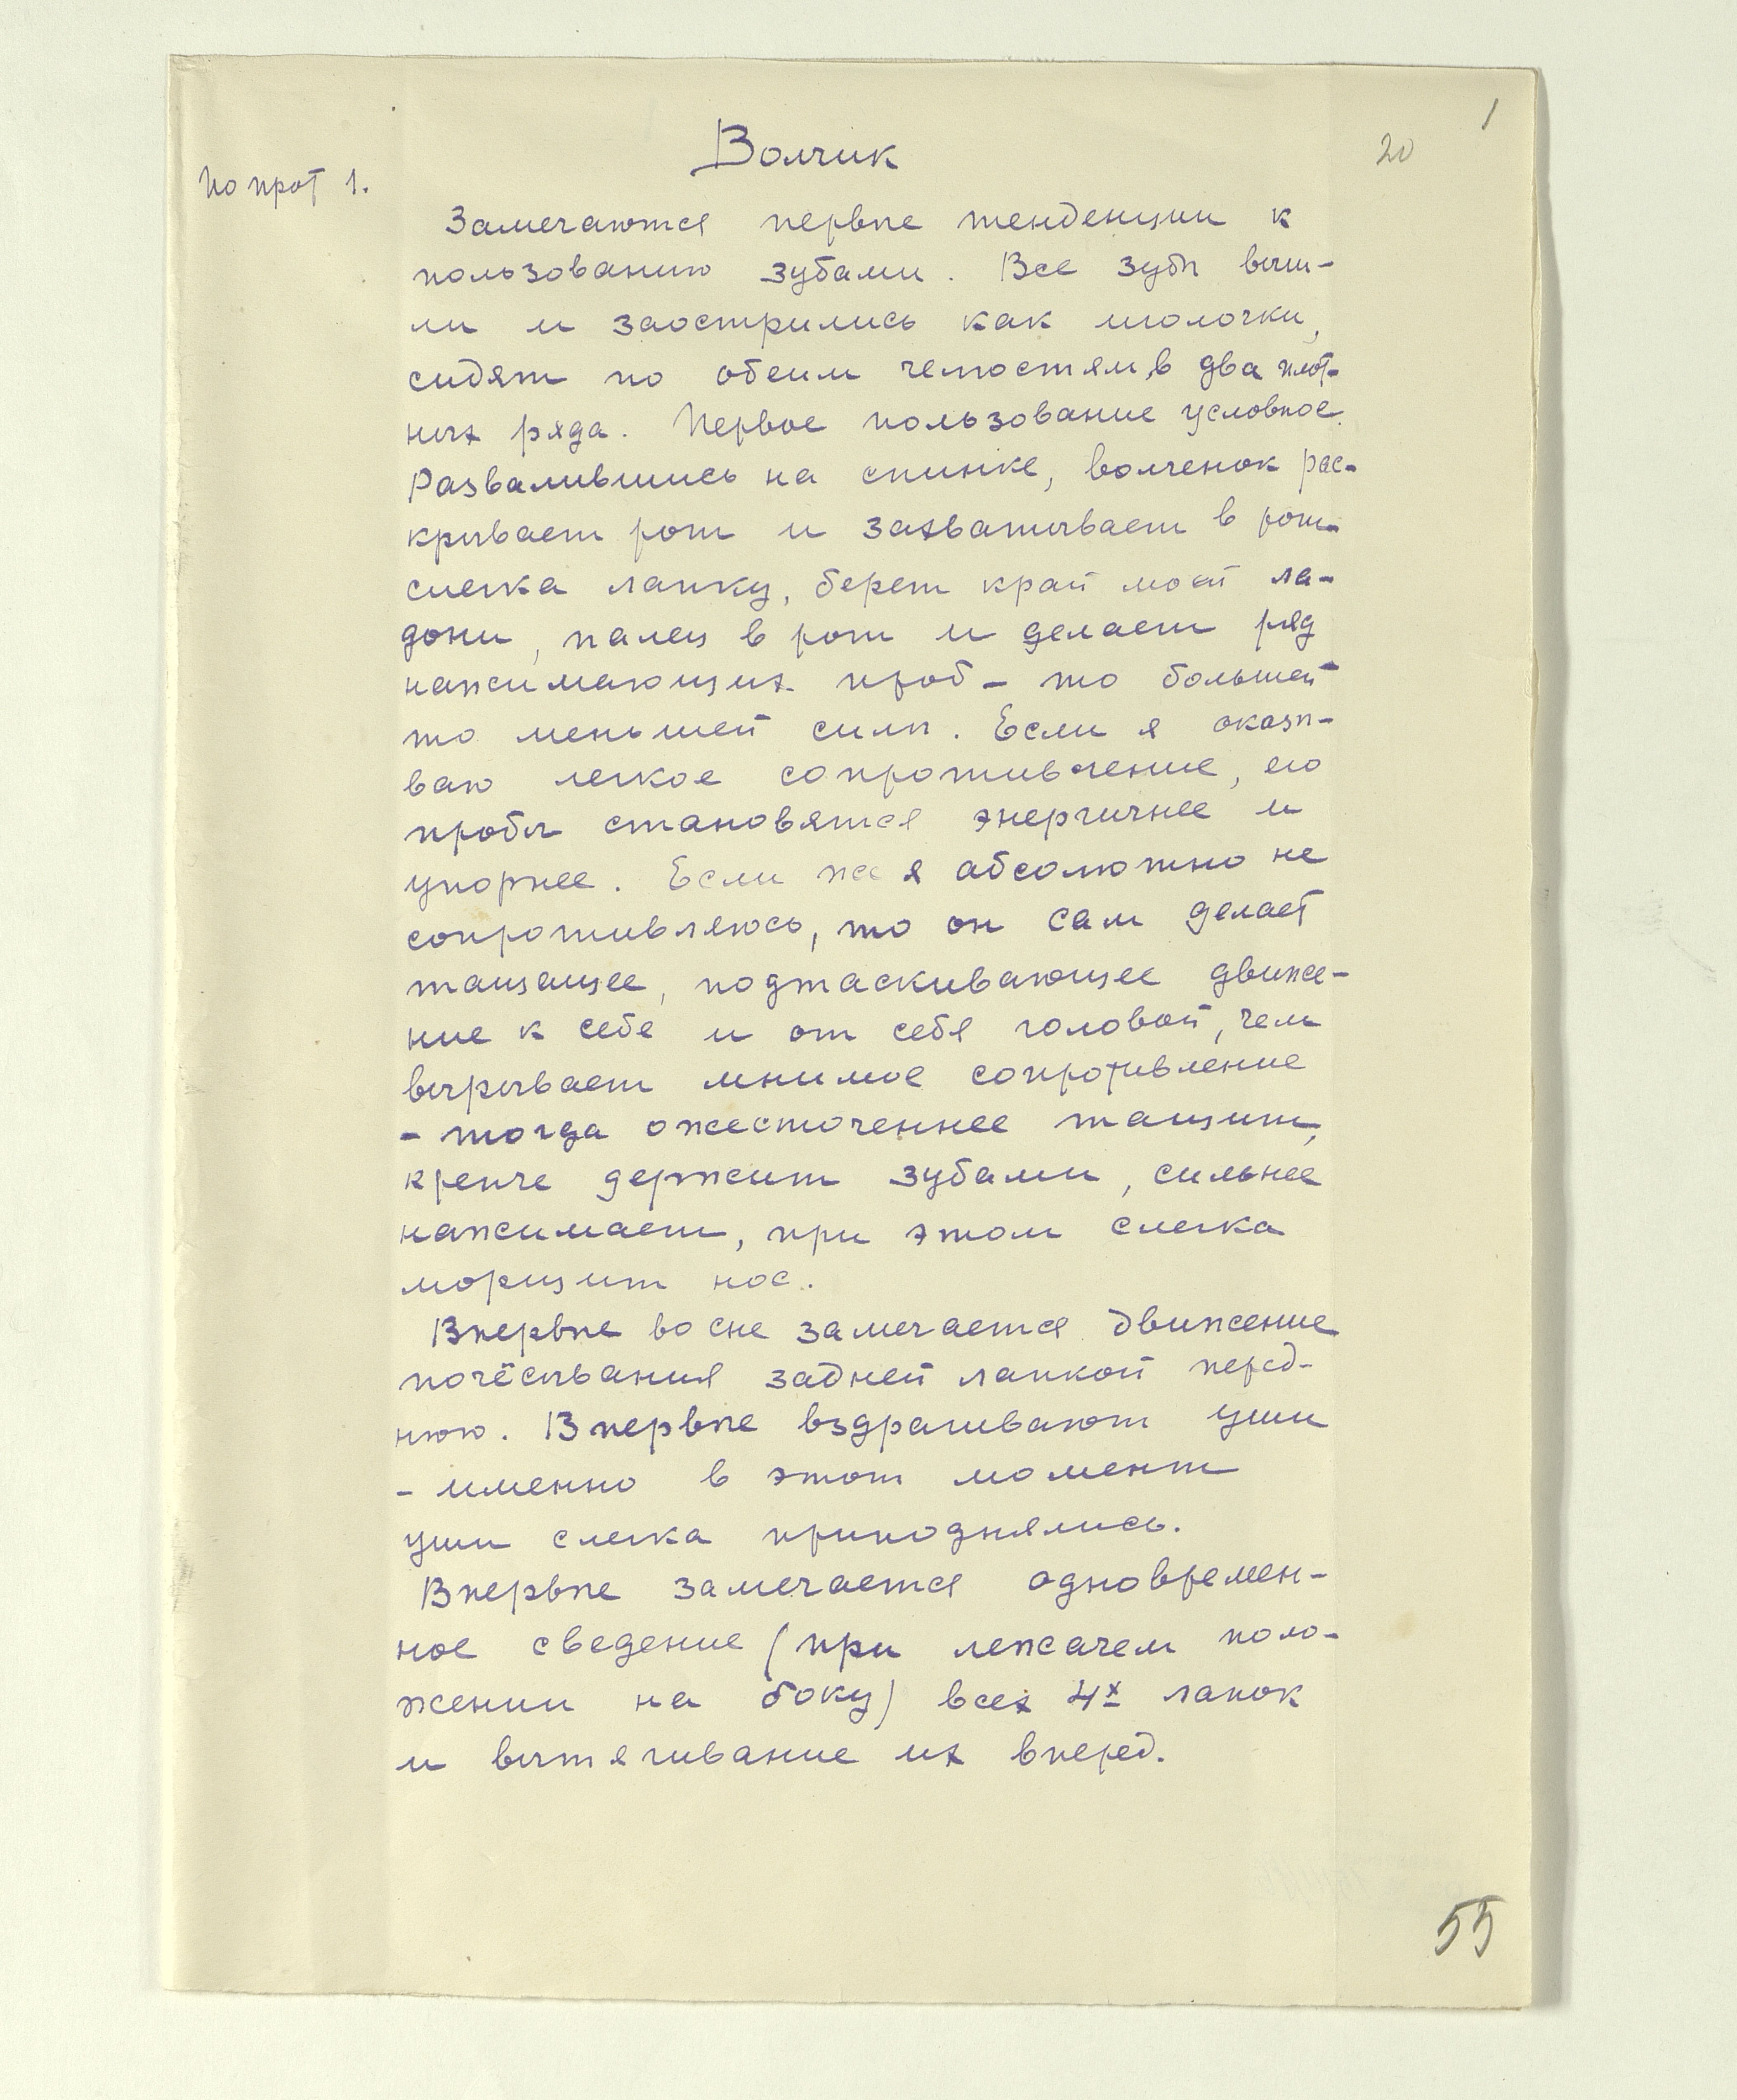 1
20
Волчик
По прот 1.
Замечаются первые тенденции к
пользованию зубами. Все зубы выш-
ли и заострились как иголочки,
сидят по обеим челюстям в два плот-
ных ряда. Первое пользование условное.
Развалившись на спинке, волченок рас-
крывает рот и захватывает в рот
слегка лапку, берет край моей ла-
дони, палец в рот и делает ряд
нажимающих проб - то большей
то меньшей силы. Если я оказы-
ваю легкое сопротивление, его
пробы становятся энергичнее и
упорнее. Если же я абсолютно не
сопротивляюсь, то он сам делает
тащащее, подтаскивающее движе-
ние к себе и от себя головой, чем
вырывает мнимое сопротивление
- тогда ожесточеннее тащит,
крепче держит зубами, сильнее
нажимает, при этом слегка
морщит нос.
Впервые во сне замечается движение
почёсывания задней лапкой перед-
нюю. Впервые вздрагивают уши
- именно в этот момент
уши слегка приподнялись.
Впервые замечается одновремен-
ное сведение (при лежачем поло-
жении на боку) всех 4х лапок
и вытягивание их вперед.
55